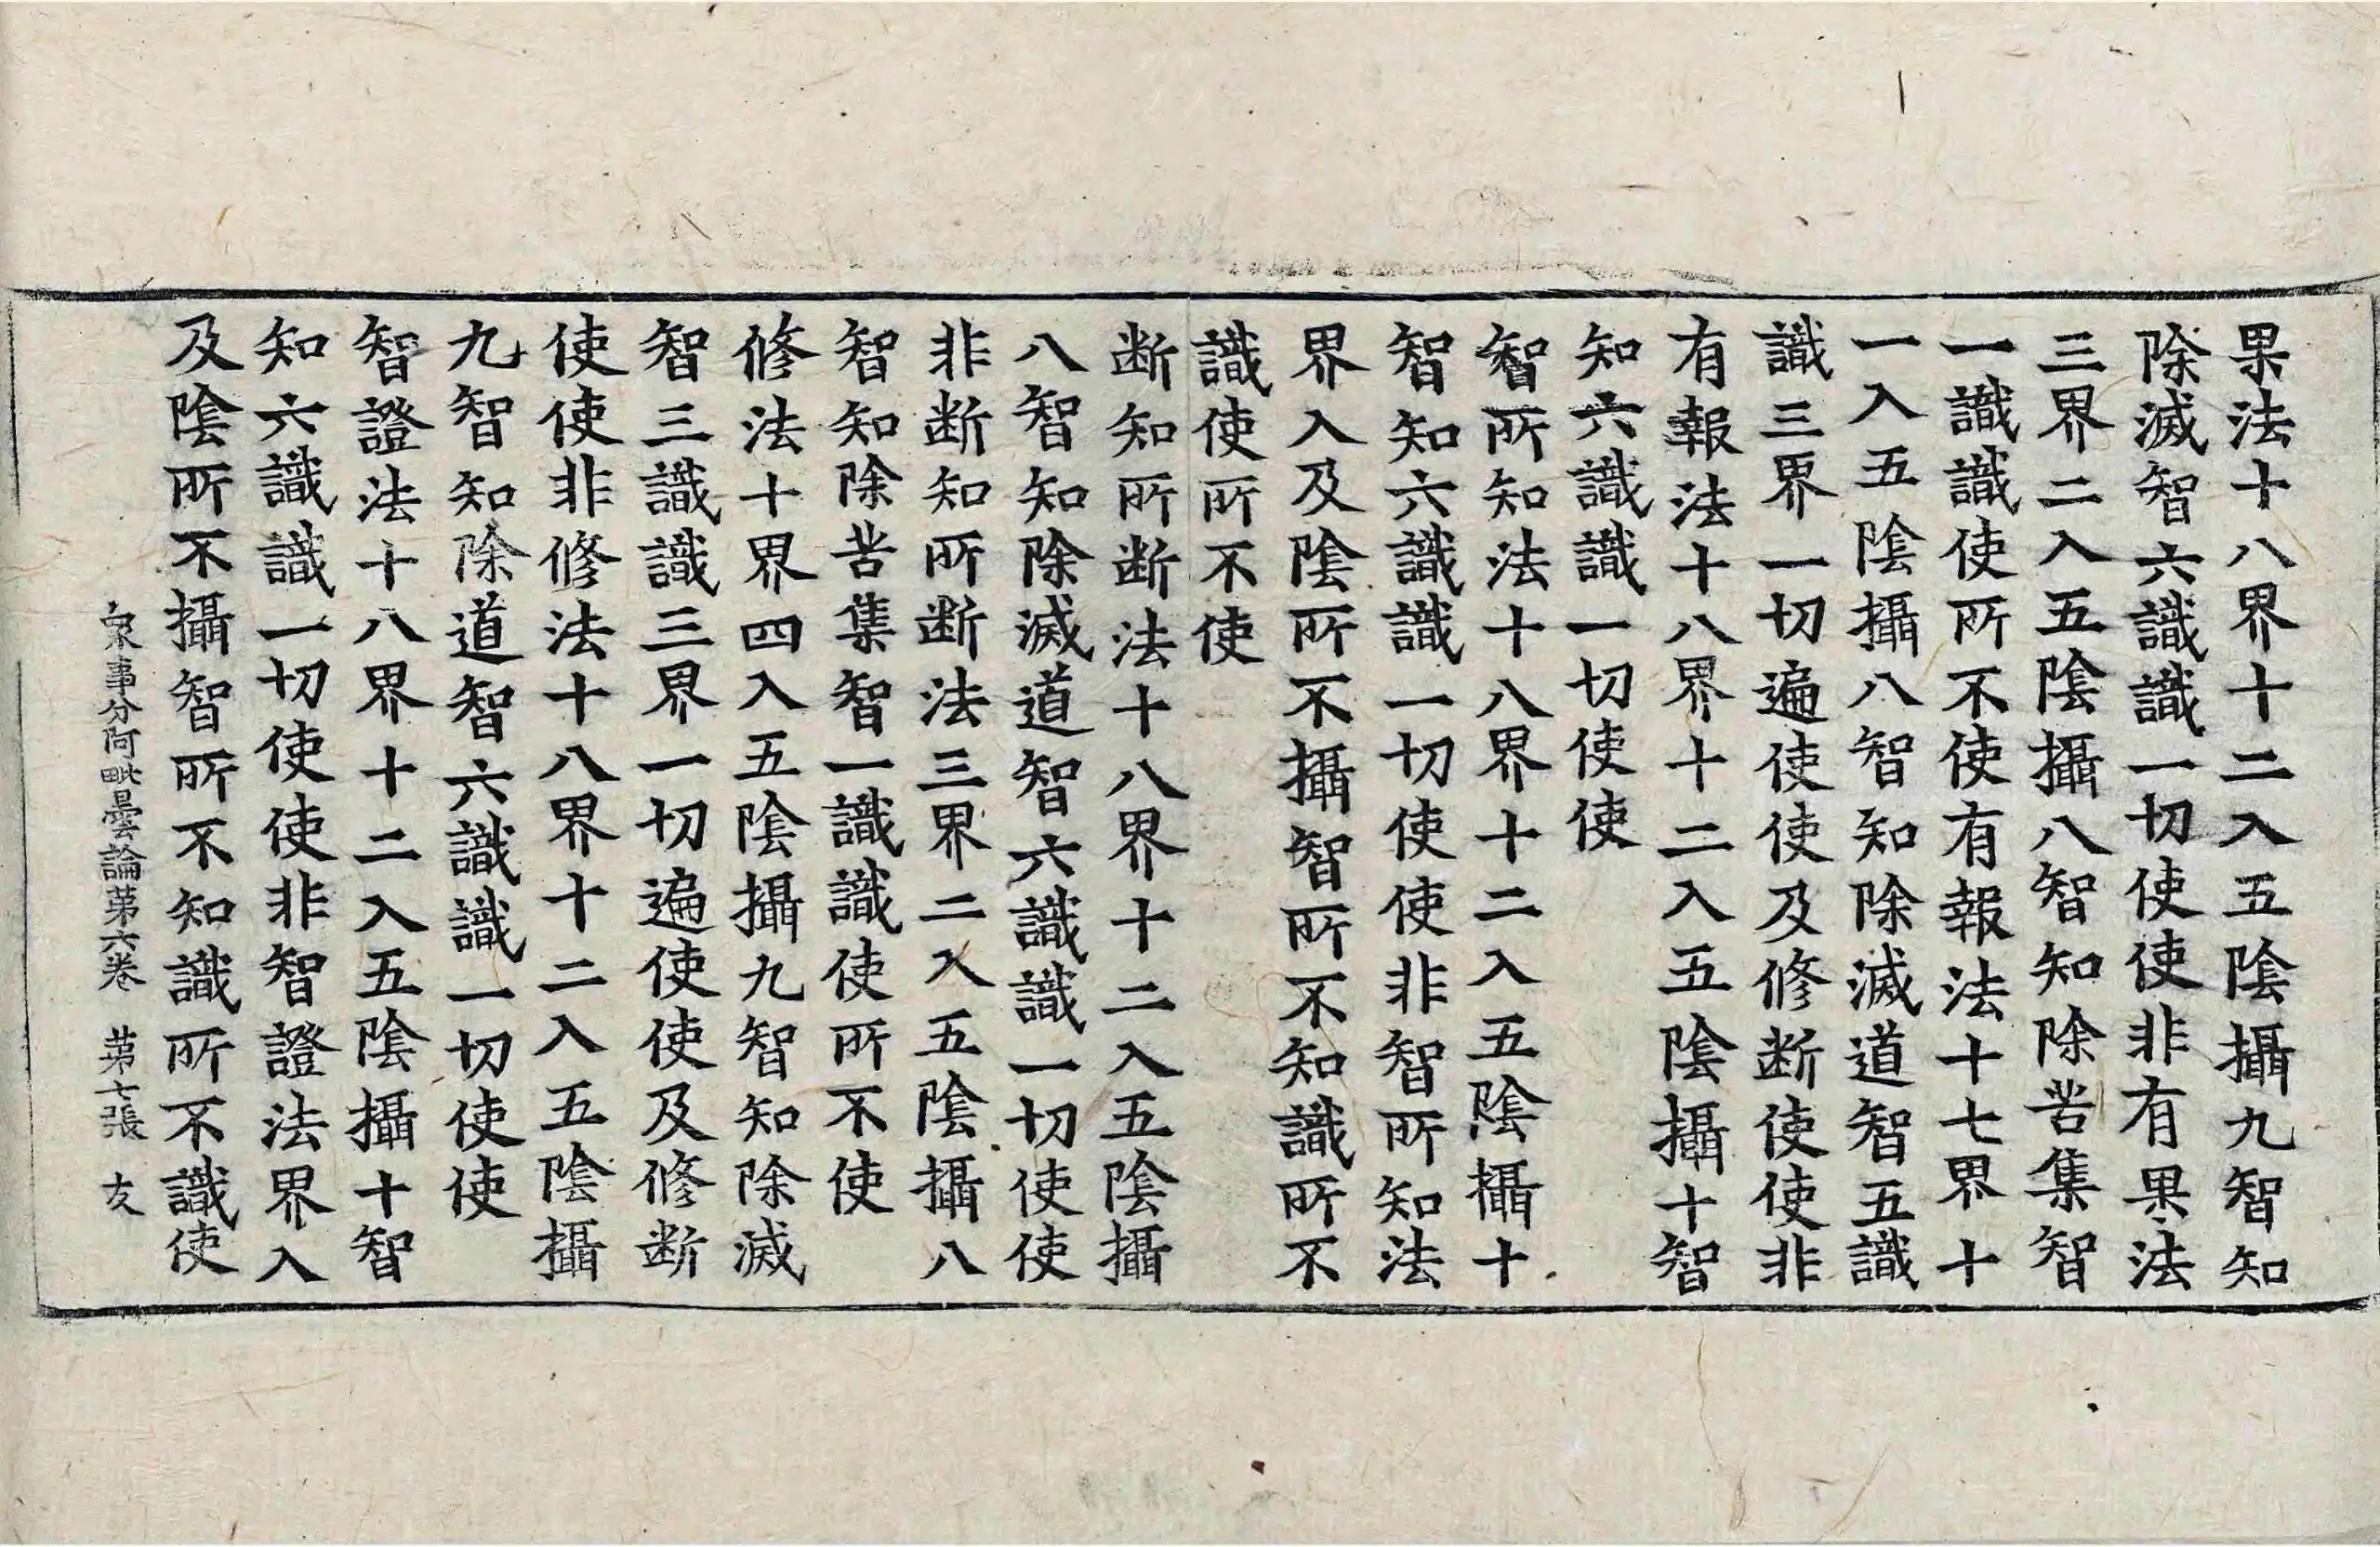 果法十八界十二入五陰攝九智知
除滅智六識識一切使使非有果法
三界二入五陰攝八智知除苦集智
一識識使所不使有報法十七界十
一入五陰攝八智知除滅道智五識
識三界一切遍使使及修断使使非
有報法十八界十二入五陰攝十智
知六識識一切使使
智所知法十八界十二入五陰攝十
智知六識識一切使使非智所知法
界入及陰所不攝智所不知識所不
識使所不使
断知所断法十八界十二入五陰攝
八智知除滅道智六識識一切使使
非断知所断法三界二入五陰攝八
智知除苦集智一識識使所不使
修法十界四入五陰攝九智知除滅
智三識識三界一切遍使使及修断
使使非修法十八界十二入五陰攝
九智知除道智六識識一切使使
智證法十八界十二入五陰攝十智
知六識識一切使使非智證法界入
及陰所不攝智所不知識所不識使
衆事分阿毗曇論苐六卷　苐七張　友